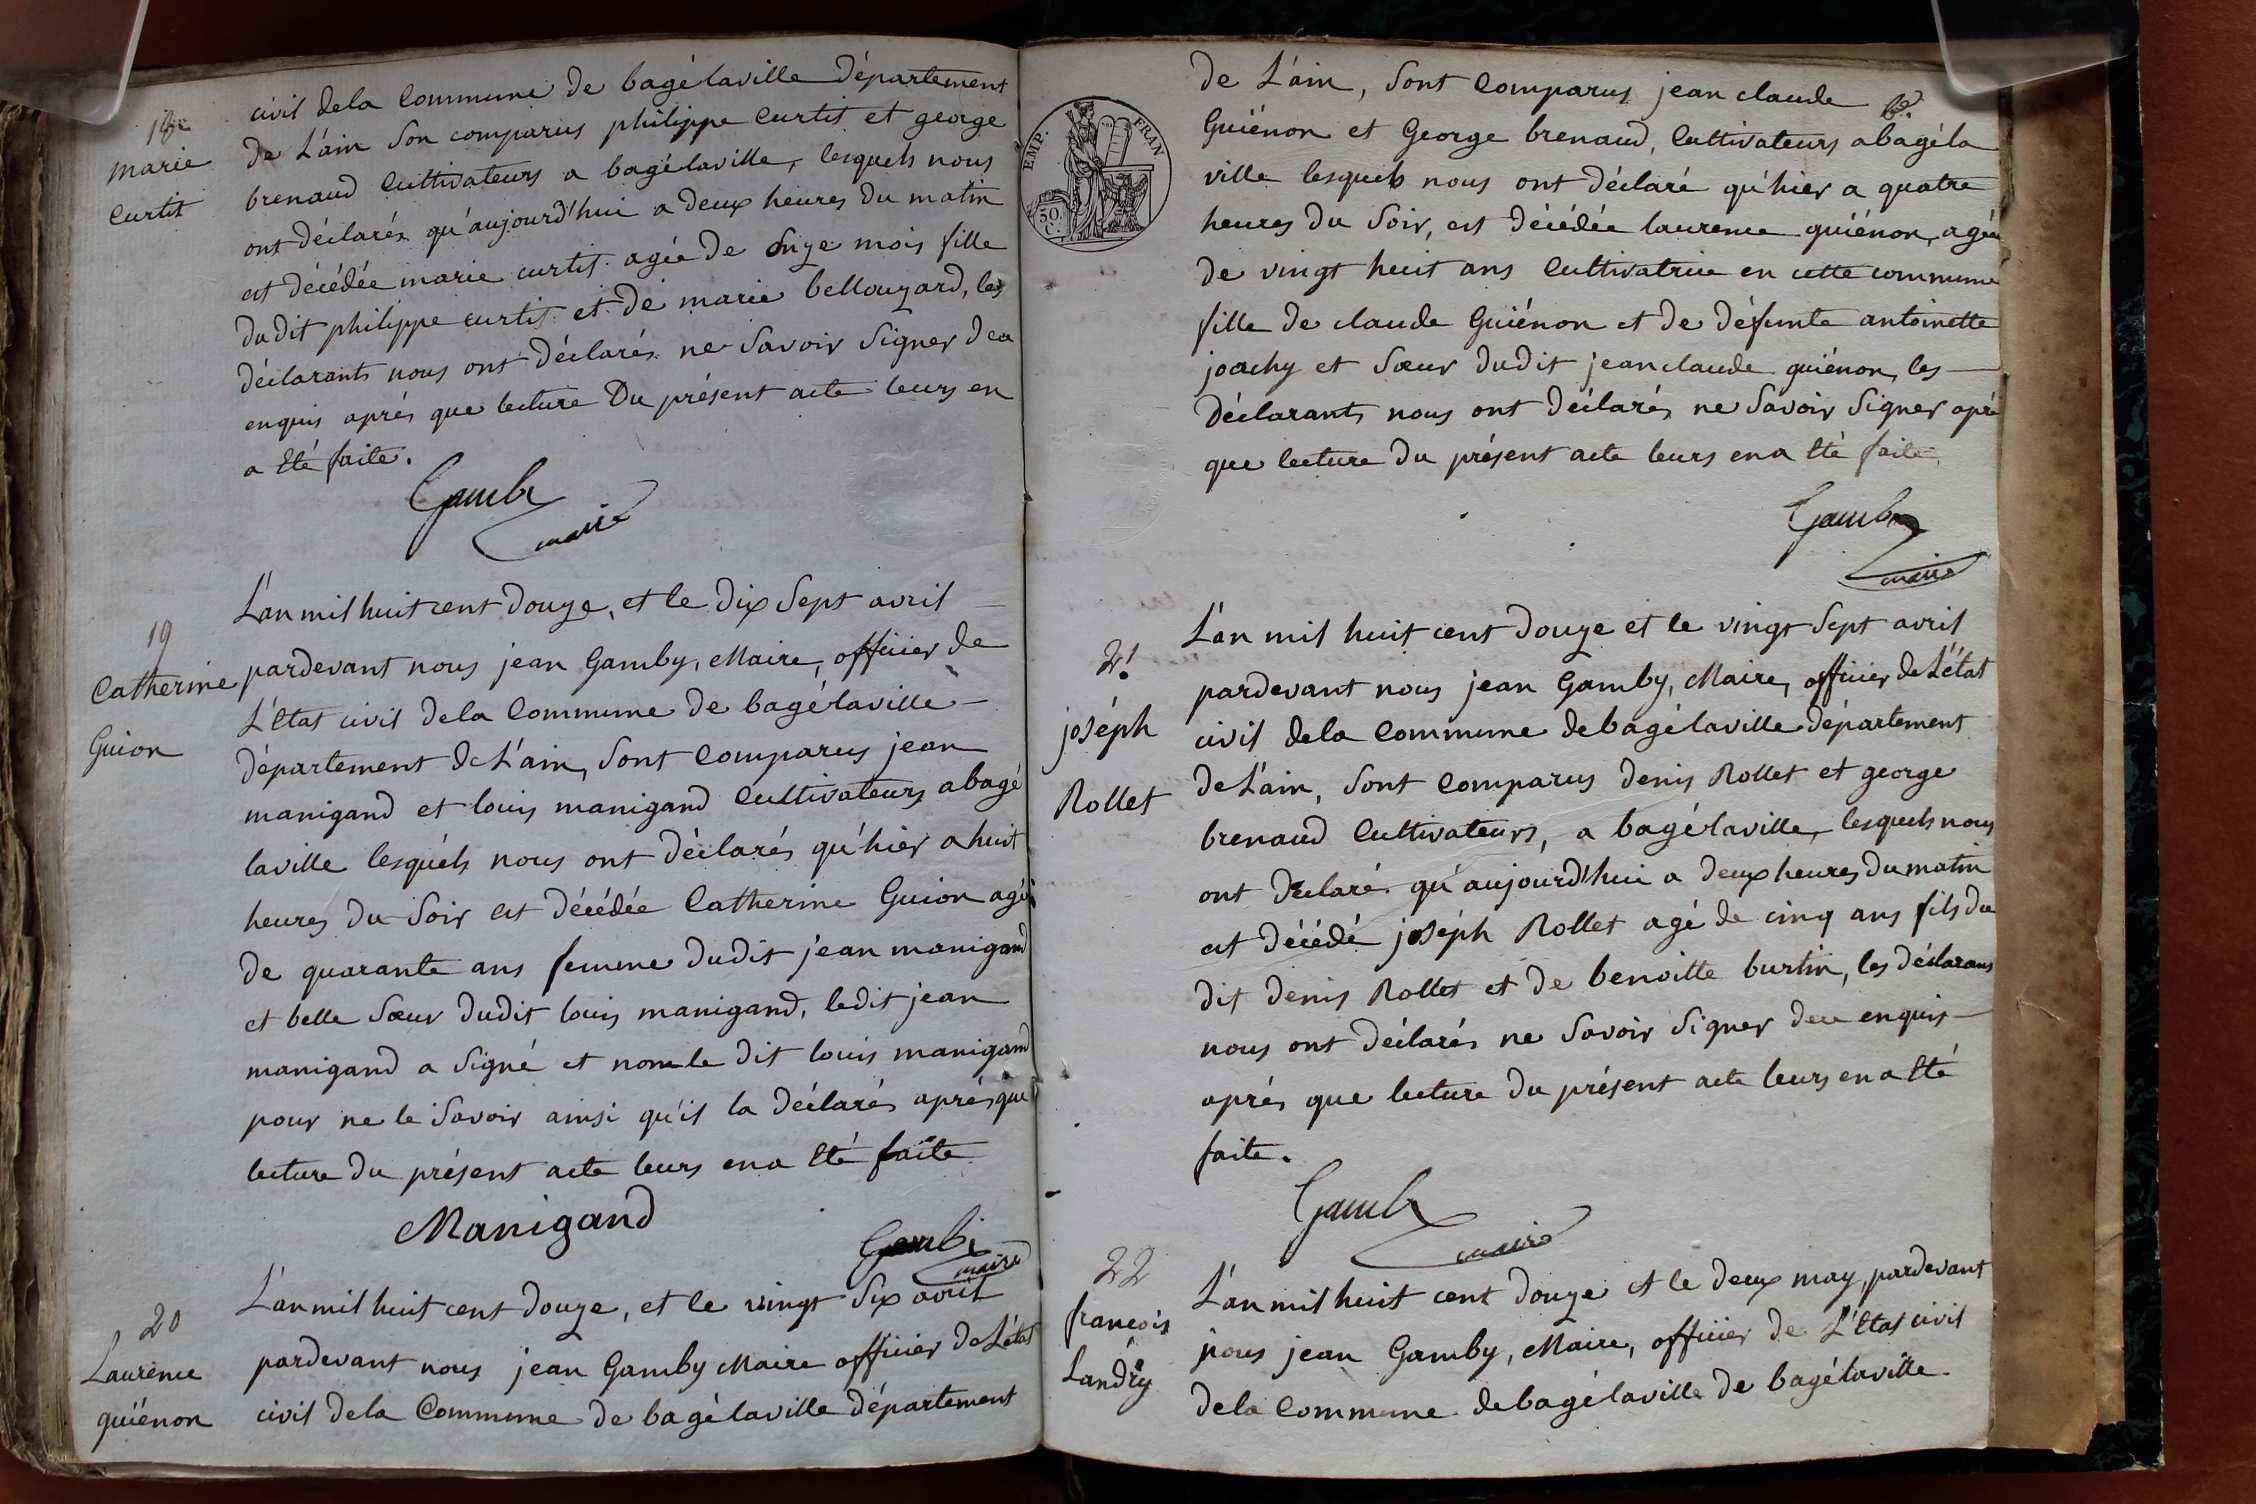 18e
marie
curtit
civil dela Commune de bagélaville département
de L'ain son comparus philippe curtit et george
brenaud Cultivateurs a bagélaville, lesquels nous
ont déclarés qu'aujourd'hui a deux heures du matin
est décédée marie curtit agée de onze mois fille
dudit philippe curtit et de marie bellouzard, les
déclarants nous ont déclarés ne savoir signer de ce
enquis aprés que lecture Du présent acte leurs en
a été faite.
Gambi
maire
19
Catherine
Guion
L'an mil huit cent douze, et le dix sept avril
pardevant nous jean Gamby, Maire, officier de
L'état civil dela Commune de bagélaville
département de L'ain, sont comparus jean
manigand et louis manigand Cultivateurs abagé
laville lesquels nous ont déclarés qu'hier a huit
heures du soir est décédée Catherine Guion agée
de quarante ans femme dudit jean manigand
et belle sœur dudit louis manigand, ledit jean
manigand a signé et non le dit louis manigand
pour ne le savoir ainsi qu'il la déclarés aprés que
lecture du présent acte leurs en a été faite
Manigand
Gambi
maire
20
Laurence
guiénon
L'an mil huit cent douze, et le vingt six avril
pardevant nous jean Gamby Maire officier de L'état
civil dela Commune de bagélaville département
EMP. FRAN
50.
C.
de L'ain, sont Comparus jean claude
Guiénon et George brenaud, Cultivateurs abagéla
ville lesquels nous ont déclaré qu'hier a quatre
heures du soir, est décédée laurence guiénon, agée
de vingt huit ans Cultivatrice en cette commune
fille de claude Guiénon et de défunte antoinette
joachy et sœur dudit jean claude guiénon, les
déclarants nous ont déclarés ne savoir signer aprè
que lecture du présent acte leurs en a été faite
Gamby
maire
21
joséph
Rollet
L'an mil huit cent douze et le vingt sept avril
pardevant nous jean Gamby, Maire, officier de L'état
civil dela Commune debagélaville département
de L'ain, sont comparus denis Rollet et george
brenaud Cultivateurs, a bagélaville, lesquels nous
ont déclaré qu'aujourd'hui a deux heures du matin
est décédé joséph Rollet agé de cinq ans fils du
dit denis Rollet et de benoitte burtin, les déclarans
nous ont déclarés ne savoir signer de ce enquis
aprés que lecture du présent acte leurs en a été
faite.
Gambi
maire
22
francois
Landry
L'an mil huit cent douze et le deux may, pardevant
nous jean Gamby, Maire, officier de L'état civil
dela Commune debagélaville de bagélaville.